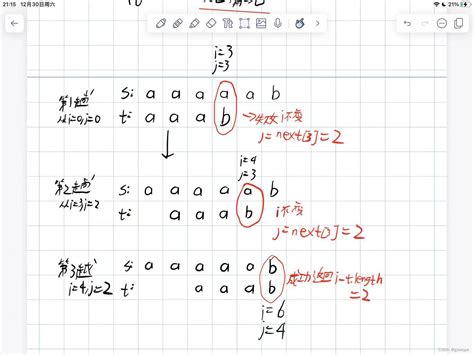 21:15 12月30日周六
21%
i=3
j=3
第1趟 s: a a a a a b
从i=0,j=0 t: a a a b →失败 i不变
j=next[3]=2
i=4
j=3
第2趟 s: a a a a a b
从i=3,j=2 t: a a a b i不变
j=next[3]=2
第3趟 s: a a a a a b 成功 返回i-t.length
i=4,j=2 t: a a a b =2
i=6
j=4